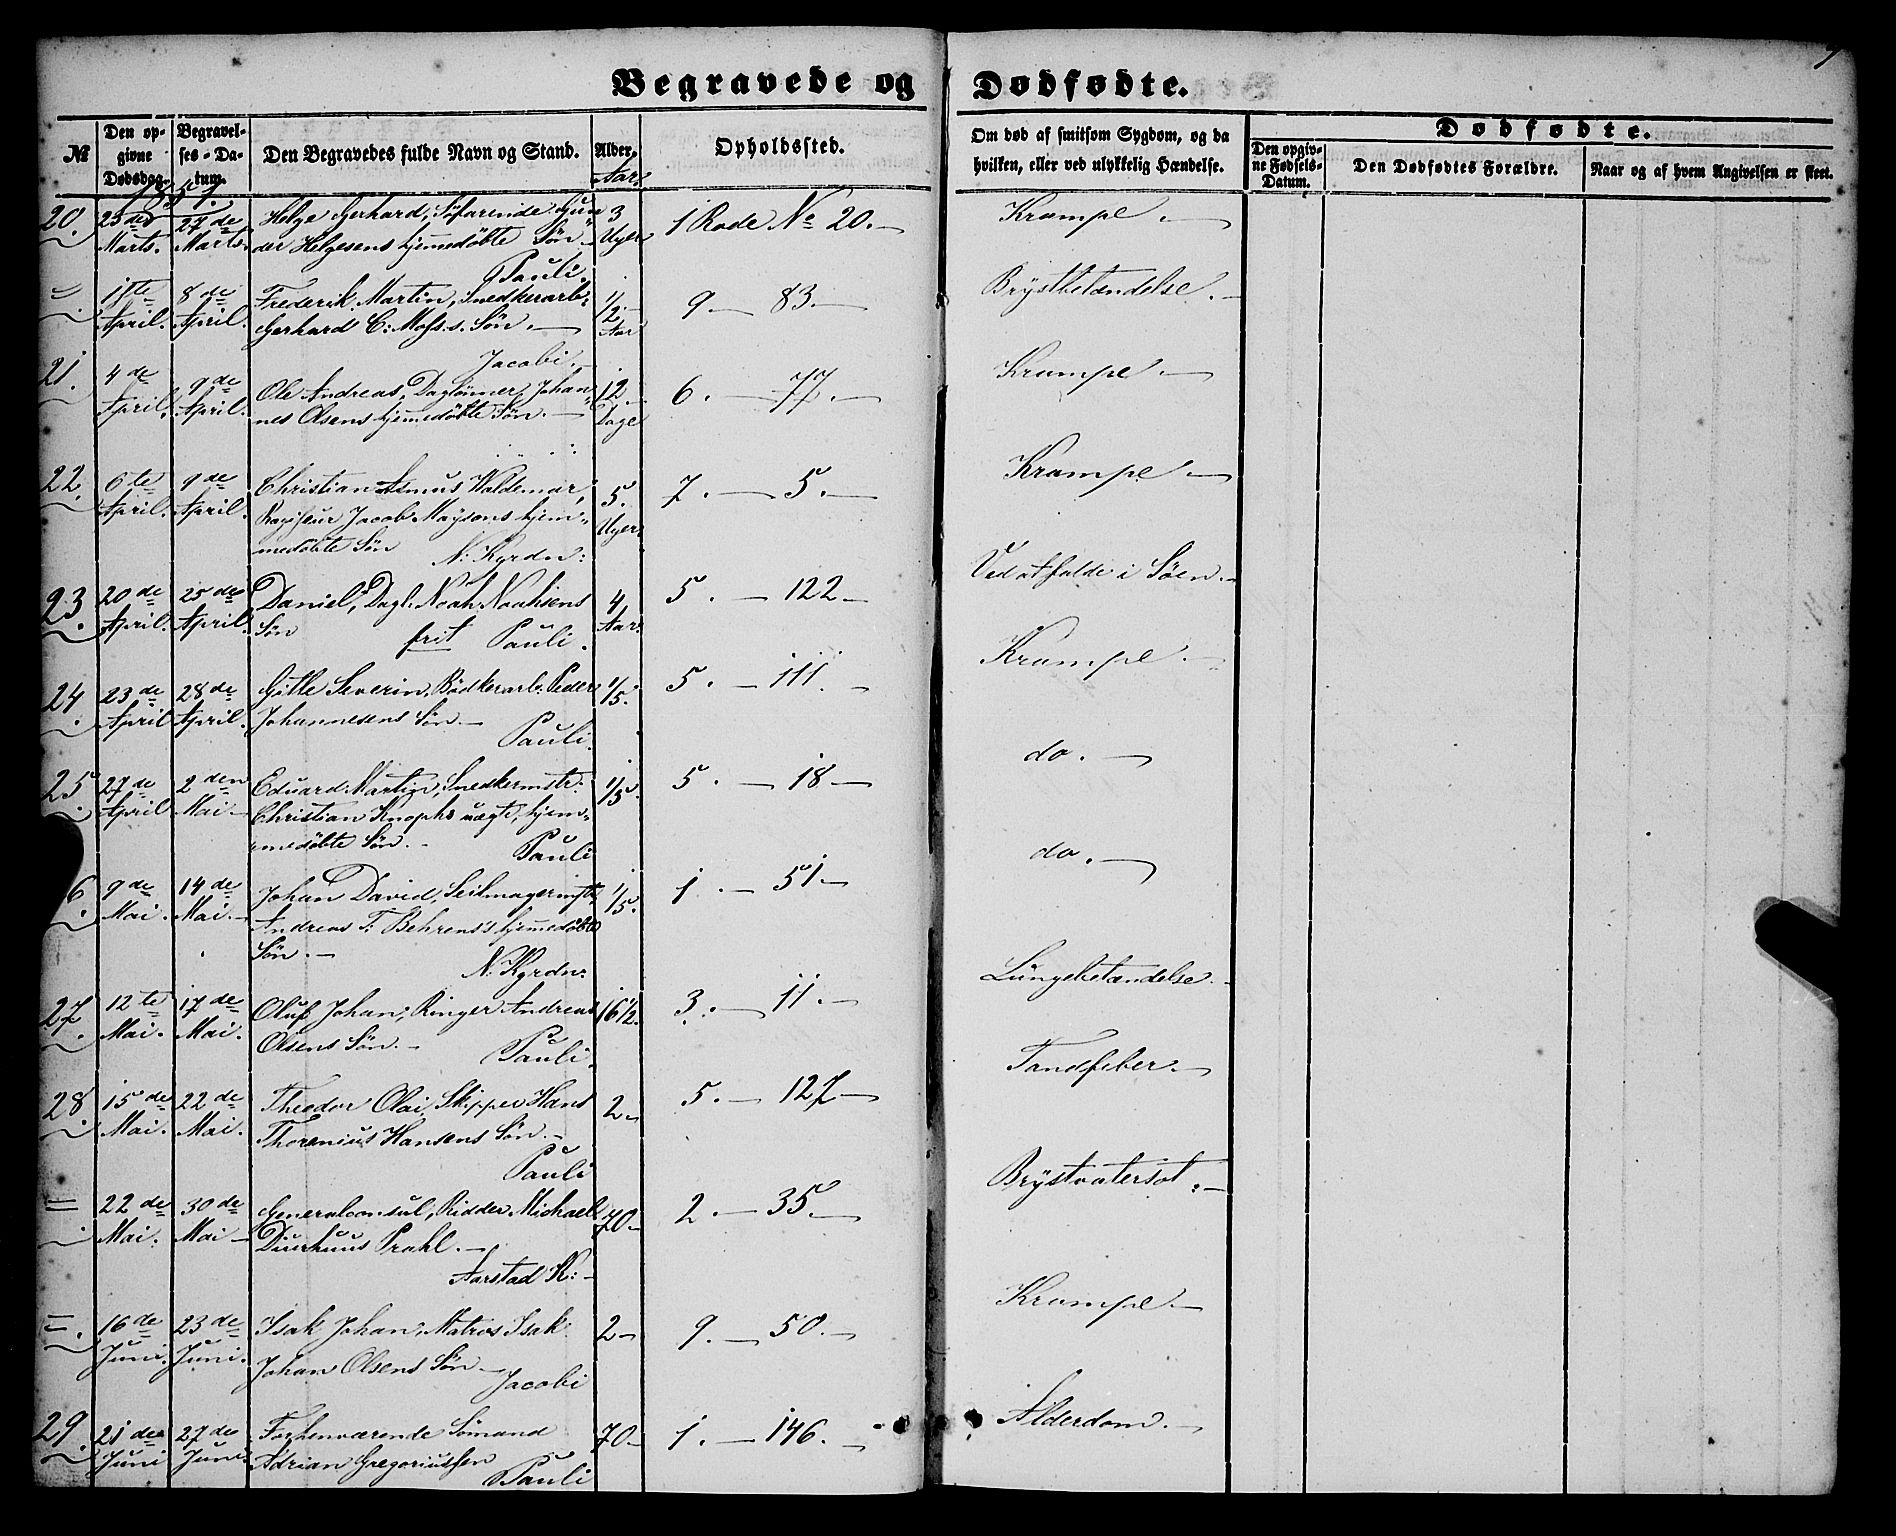 7
Begravede og Dødfødte.
№
Den opgivne Dødsdag.
Begravelses-Datum.
Den Begravedes fulde Navn og Stand.
Alder.
Aar
Opholdssted.
Om død af smitsom Sygdom, og da hvilken, eller ved ulykkelig Hændelse.
Dødfødte.
Den opgivne Fødsels-Datum.
Den Dødfødtes Forældre.
Naar og af hvem Angivelsen er skeet.
1857.
20. 23de Marts. 27de Marts. Helge Gerhard, Søfarende Gun- 3 Uger 1 Rode No 20. Krampe
der Helgesens hjemmedöbte Søn
Pauli
= 1ste April. 8de April. Frederik Martin, Snedkerarb: 1/2 Aar 9 — 83. Brÿstbetændelse.
Gerhard C: Moss.s. Søn.
Jacobi.
21. 4de April. 9de April. Ole Andreas, Daglönner Johan- 12 Dage 6. — 77. Krampe
nes Olsens hjemmedöbte Søn.
22. 6te April. 9de April. Christian Asmus Valdemar, 5. Uger 7. — 5. Krampe
Jacob Maÿsons hjem-
medöbte Søn N. Kgrdn:
23. 20de April. 25de April. Daniel, Dagl. Noah Noahsens 4 Aar. 5. — 122 Ved at falde i Söen.
Søn frit Pauli.
24. 23de April 28de April. Gitle Severin, Bödkerarb. Peder 1/5. 5. — 111. Krampe.
Johannesens Søn. Pauli.
25. 27de April 2den Mai Eduard Martin, Snedkermstr. 1/5. 5. — 18 do.
Christian Knophs uægte, hjem-
medöbte Søn. Pauli
6. 9de Mai. 14de Mai. Johan David, Seilmagermstr. 1/5. 1. — 51 do.
Andreas T. Behrens's hjemmedöbte
Søn. N. Kgrdn.
27. 12te Mai. 17de Mai. Oluf Johan, Ringer Andreas 16 1/2. 3. — 11. Lungebetændelse.
Olsens Søn. Pauli.
28. 15de Mai. 22de Mai. Theodor Olai, Skipper Hans 2 5. — 127 Tandfeber.
Thorenius Hansens Søn.
Pauli
= 22de Mai. 30de Mai Generalconsul, Ridder Michael 70 2. — 35. Brÿstvatersot.
Duerhuus Prahl.
Aarstad K:
=. 16de Juni. 23de Juni. Isak Johan, Matros Isak 2 9. — 50. Krampe.
Johan Olsens Søn
Jacobi
29. 21de Juni 27de Juni Forhenværende Sömand 70 1. — 146. Alderdom.
Adrian Gregoriussen
Pauli